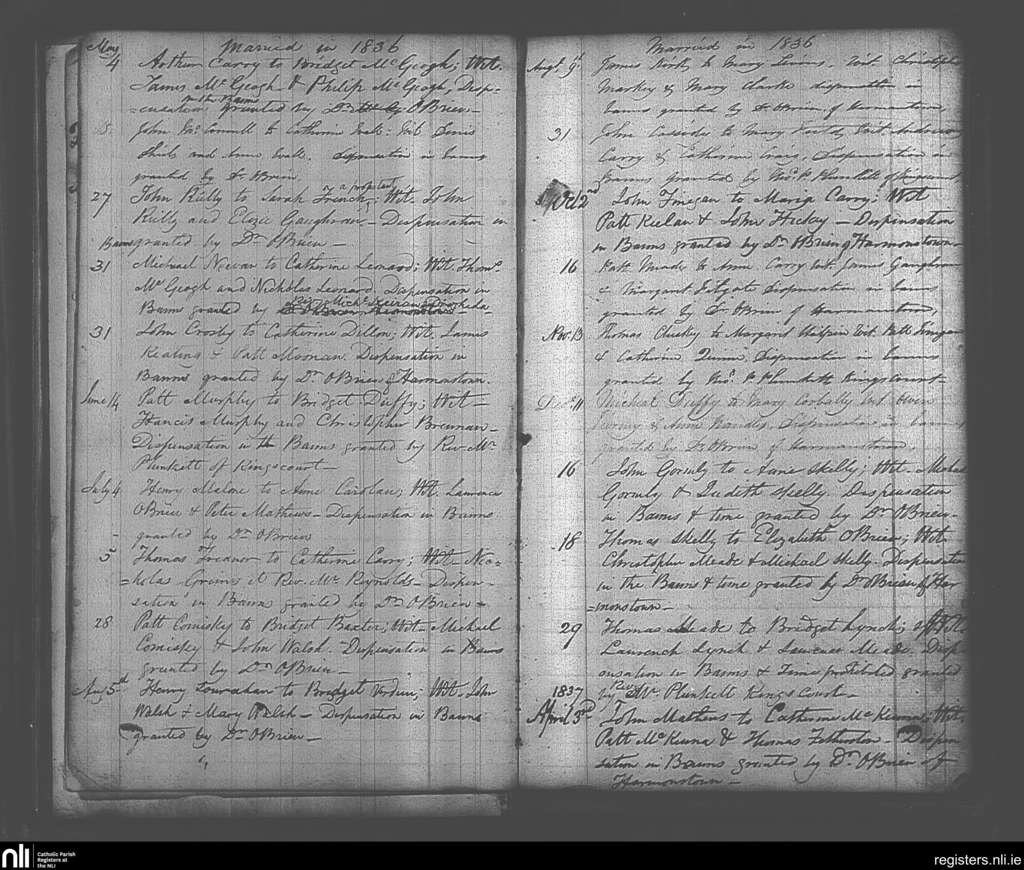 Married in 1836
May
4 Arthur Carry to Bridget McGeogh; Wit.
James McGeogh & Philip McGeogh, Disp-
=ensation granted by Dr. O'Brien-
John McConnell to Catherine Wit. Denis
Shiels and Anne. Dispensation in banns
granted by Dr Brien
or a protestant
27 John Reilly to Sarah French; Wit. John
Reilly and Eliza Gaughran - Dispensation in
Banns granted by Dr. O'Brien -
31 Michael to Catherine Leonard; Wit. Thoms.
McGeogh and Nicholas Leonard. Dispensation in
Banns granted by
31 John Crosby to Catherine Dillon; Wit. James
Keating & Patt Moonan. Dispensation in
Banns granted by Dr. O'Brien of Harmonstown.
June 14 Patt Murphy to Bridget Duffy; Wit-
Francis Murphy and Christopher Brennan-
Dispensation in the Banns granted by Rev. Mr.
Plunkett of Kingscourt-
July 4 Henry Malone to Anne Carolan; Wit. Laurence
O'Brien & Peter Mathews- Dispensation in Banns
granted by Dr. O'Brien
5 Thomas to Catherine Carry; Wit- Nic-
=holas & Rev. Mr. Reynolds- Dispen-
sation in Banns granted by Dr. O'Brien-
28 Patt Comiskey to Bridget Baxter; Wit- Michael
Comiskey & John Walsh. Dispensation in Banns
granted by Dr. O'Brien-
Aug 5th Henry to Bridget; Wit. John
Walsh & Mary Walsh- Dispensation in Banns
granted by Dr. O'Brien-
Married in 1836
Augt. 9th James to Mary Wit Christopher
Markey & Mary Clarke dispensation in
banns granted by Dr OBrien of Harmonstown
31 John Cassidy to Mary Wit
Carry & Catherine Craig, Dispensation in
banns granted by Thos. P. Plunkett of Kingscourt
Oct 2nd John Finegan to Maria Carry; Wit
Patt Keelan & John Hickey - Dispensation
in Banns granted by Dr. O'Brien of Harmonstown-
16 Patt Meade to Anne Carry wit James Gaughran
& Margaret Dispensation in banns
granted by Dr. OBrien of Harmonstown,
Nov. 13 Thomas to Margaret Halpin wit Patt Finegan
& Catherine Quinn, Dispensation in banns
granted by Thos. P. Plunkett Kingscourt-
Decr. 11 Michael Duffy to Mary Corbally wit Owen
& Anne Dispensation in banns
granted by Dr OBrien of Harmonstown
16 John Gormly to Anne Skelly; Wit. Michael
Gormly & Judith Skelly. Dispensation
in Banns & time granted by Dr. O'Brien-
18 Thomas Skelly to Elizabeth O'Brien; Wit-
Christopher Meade & Michael Skelly- Dispensation
in the Banns & time granted by Dr. O'Brien of Har
=monstown-
29 Thomas Meade to Bridget Lynch; Wit.
Laurence Lynch & Laurence Meade. Disp
ensation in Banns & Time prohibited granted
by Revd Mr. Plunkett Kings Court-
1837
April 3rd John Mathews to Catherine McKenna; Wit.
Patt McKenna & Thomas - Dispen
sation in Banns granted by Dr. O'Brien of
Harmonstown-
nli
Catholic Parish
Registers at
the NLI
registers.nli.ie